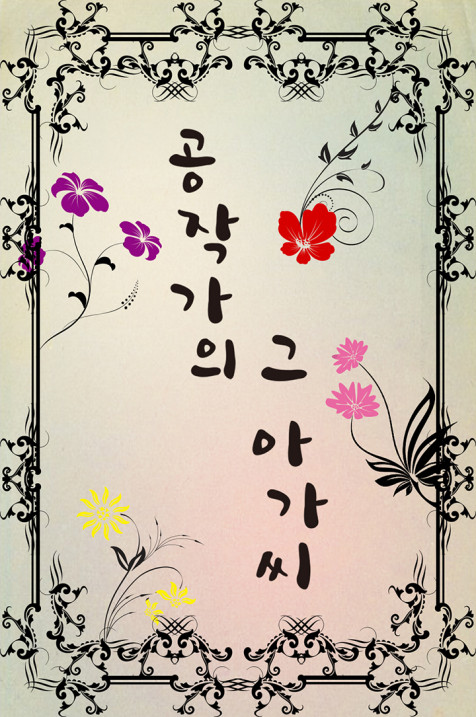 공작가의
그 아가씨